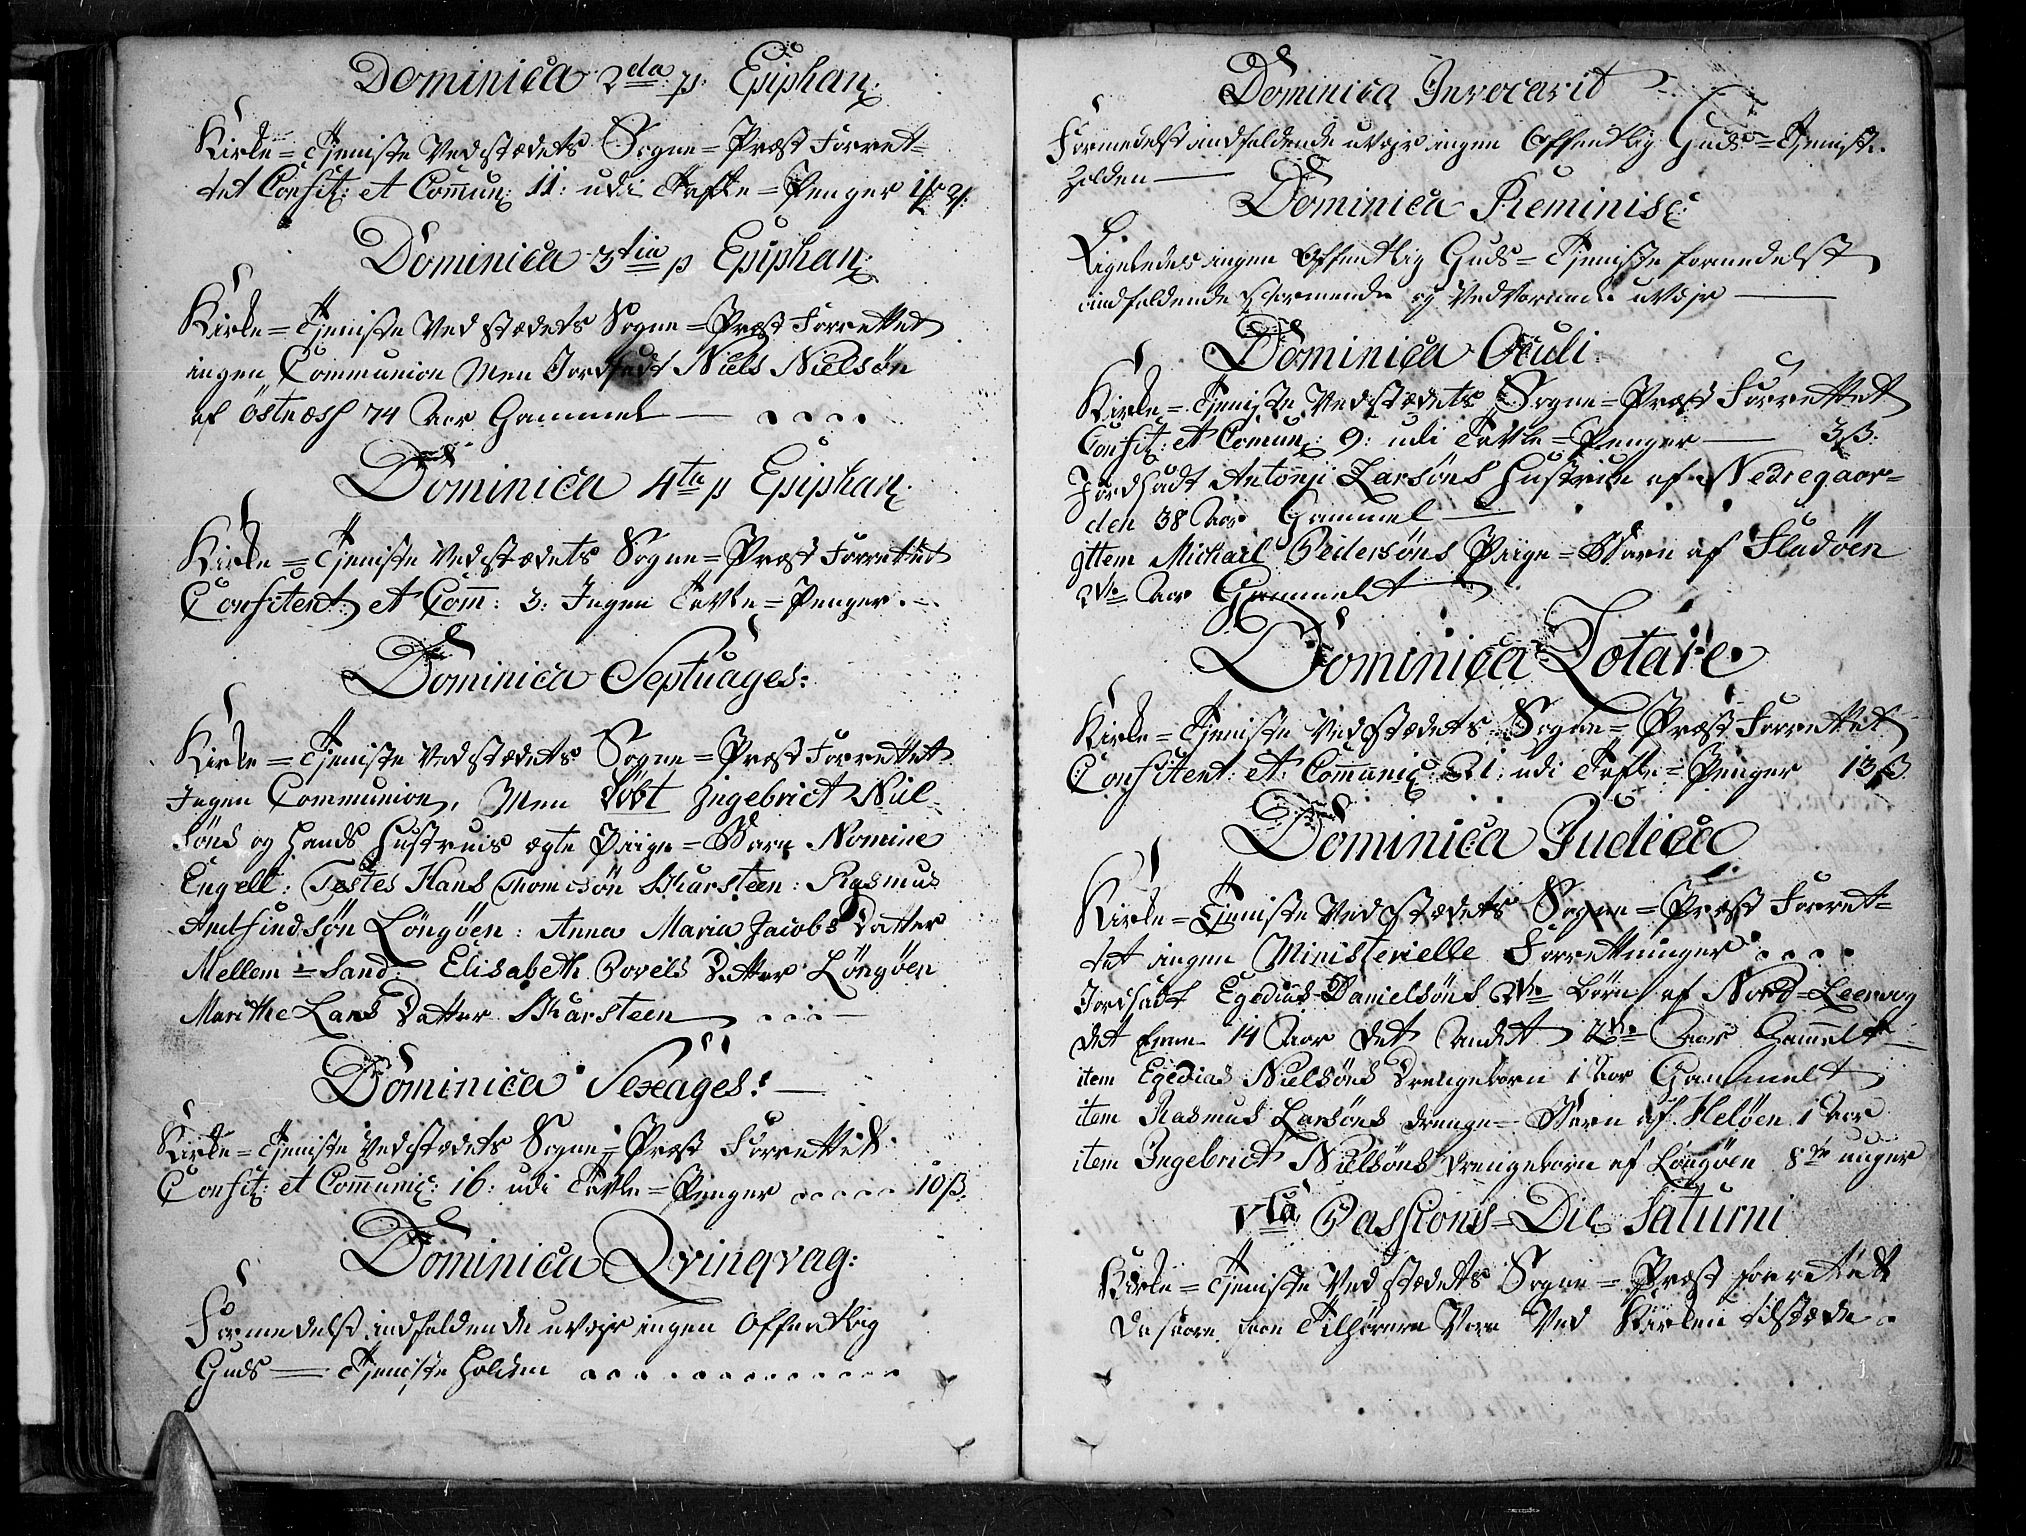 Dominica 2da p. Epiphan:
Kirke=Tjeniste Ved stædets Sogne=Præst Forret-
tet Confit: et Com̅un: 11: udi Tafle=Penger
Dominica 3tia p Epiphan:
Kirke=Tjeniste Ved stædets Sogne=Præst Forrettet
ingen Communion Men Jordsadt Niels Nielsøn
af Østnæss 74 Aar Gammel
Dominica 4ta p Epiphan:
Kirke=Tjeniste Ved stædets Sogne=Præst Forrettet
Confitent: et Com̅: 3: Ingen Tavle=Penger
Dominica Septuages:
Kirke=Tjeniste Ved stædets Sogne=Præst Forrettet
Ingen Communion, Men Døbt Ingebrict Niel-
søns og Hands Hustrues ægte Piige=Barn Nomine
Engell: Testes Hans Thomesøn Skarsteen: Rasmus
Løngøen: Anna Maria Jacobs Datter
Mellem=Sand: Elisabeth Povels Datter Løngøen
Marithe Lars Datter Skarsteen
Dominica Sexages:
Kirke=Tjeniste Ved stædets Sogne=Præst Forrettet
Confit: et Com̅unic: 16: udi Tavle=Penger ..... 10 ß.
Dominica Qvinqvag:
Formedelst indfaldende uvejr ingen Offentlig
Guds=Tjeniste holden
Dominica Invocavit
Formedelst indfaldende uvejr ingen Offentlig Guds=Tjenist:
holden
Dominica Reminisc:
Ligeledes ingen Offentlig Guds=Tjeniste formedelst
indfaldende stormende og Vedvarende uvejr
Dominica Oculi
Kirke=Tjeniste Ved stædets Sogne=Præst Forrettet
Confit: et Comun: 9: udi Tavle=Penger 3 ß.
Jordsadt Antonji Larsøns Hustrue af Nedregaar=
den 38 Aar Gammel
Ittem Michael Pedersøns Piige=Barn af Fladøen
Aar Gammelt
Dominica Lætare
Kirke=Tjeniste Ved stædets Sogne=Præst Forrettet
Confitent: et: Com̅unic: 21: udi Tafle=Penger 13 ß
Dominica Judica
Kirke=Tjeniste Ved stædets Sogne=Præst Forret=
tet ingen Ministerielle Forrettninger
Jordsadt Egedius Danielsøns Børn af Nord=Leervog
det Eene 14 Aar det Andet Aar Gam̅elt
item Egedius Nielsøns Drengebarn 1 Aar Gammelt
item Rasmus Larsøns Drenge=Barn af Heløen 1 Aar
item Ingebrict Nielsøns Drengebarn af Løngøen 8te uuger
Vta Passionis=Die Saturni
Kirke=Tjeniste Ved stædets Sogne=Præst forrettett
Da faae Tilhørere Vare Ved Kirken tilstæde.